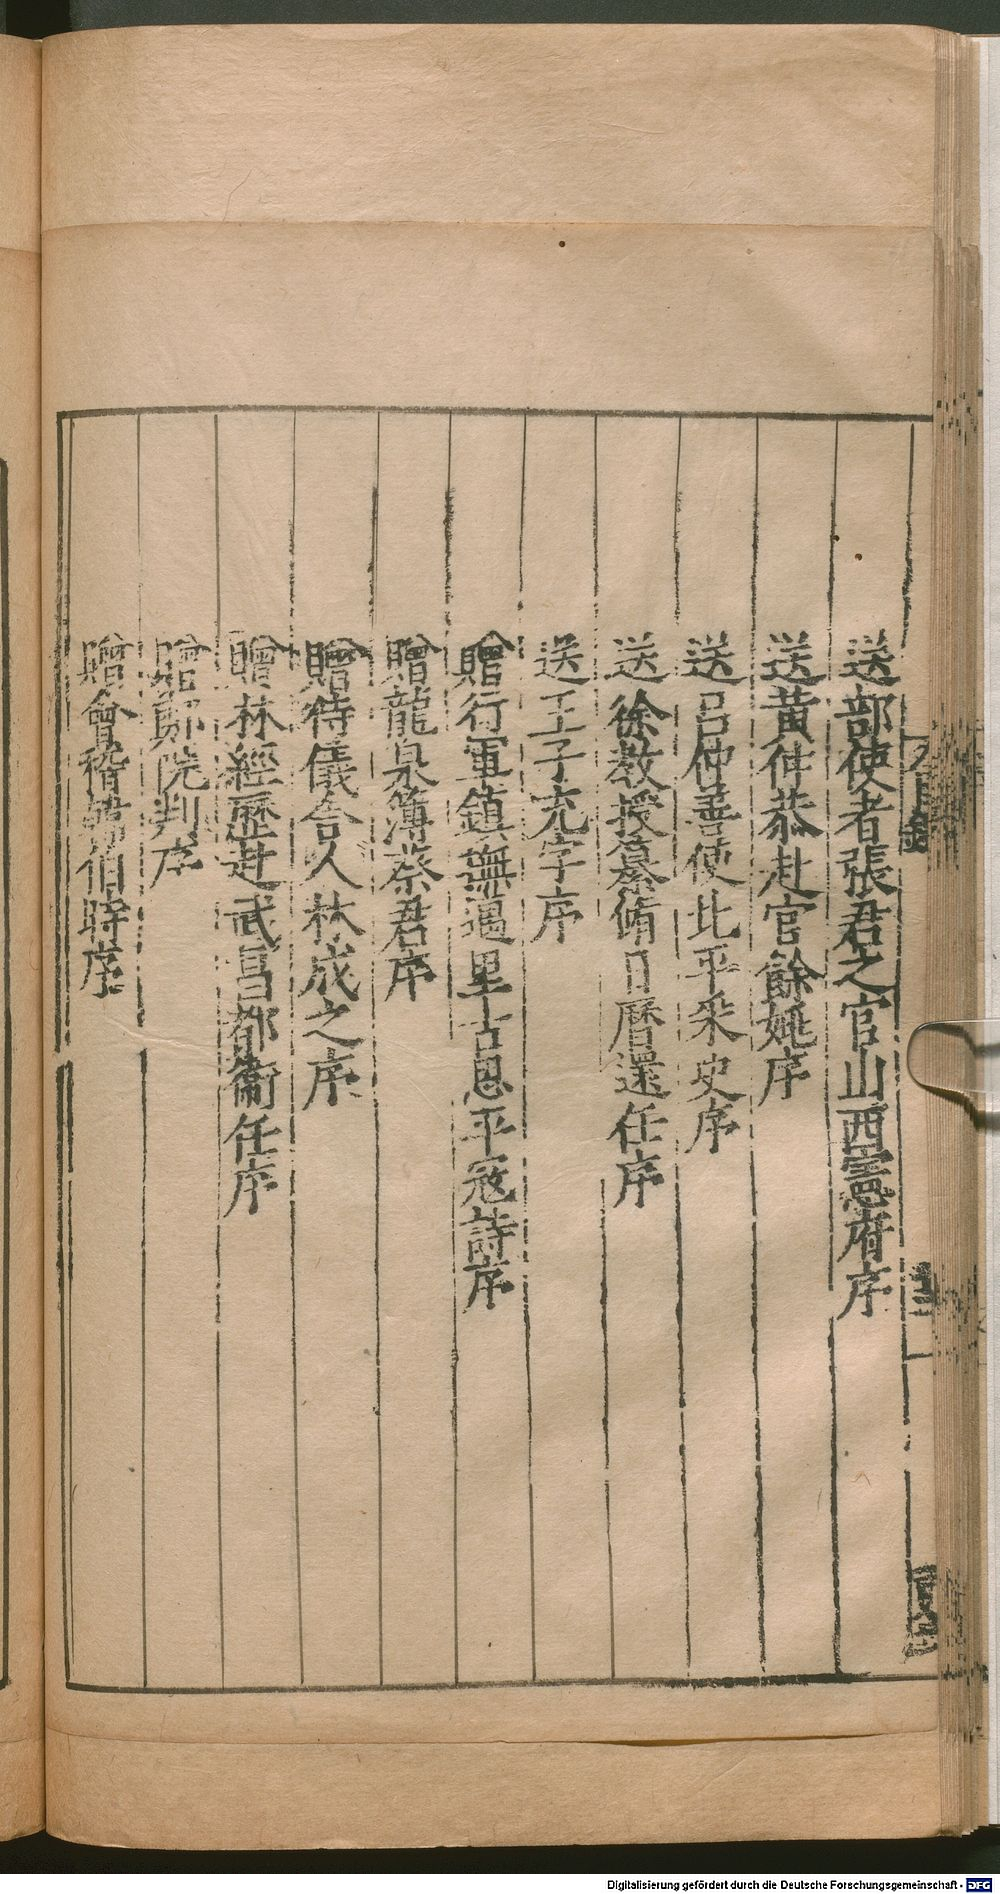 送部使者張君之官山西憲府序
送黃仲恭赴官餘姚序
送呂仲善使北平采史序
送徐教授纂脩日曆還任序
送王子充字序
贈行軍鎮撫邁里古思平寇詩序
贈龍泉簿蔡君序
贈待儀舍人林成之序
贈林經歷赴武昌都衛任序
贈鄭院判序
贈會稽韓伯時序
目錄
Digitalisierung gefördert durch die Deutsche Forschungsgemeinschaft - DFG